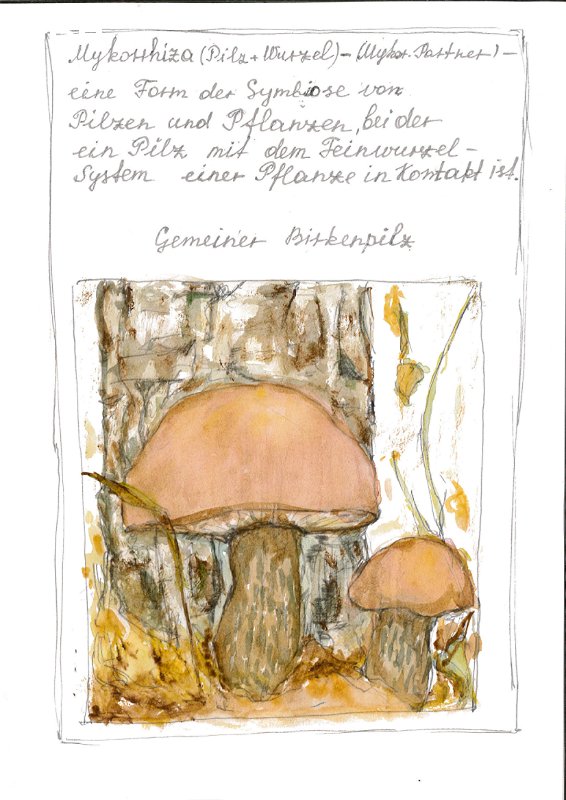 Mykorrhiza (Pilz + Wurzel) – (Mykor. Partner) –
eine Form der Symbiose von
Pilzen und Pflanzen, bei der
ein Pilz mit dem Feinwurzel-
System einer Pflanze in Kontakt ist.
Gemeiner Birkenpilz